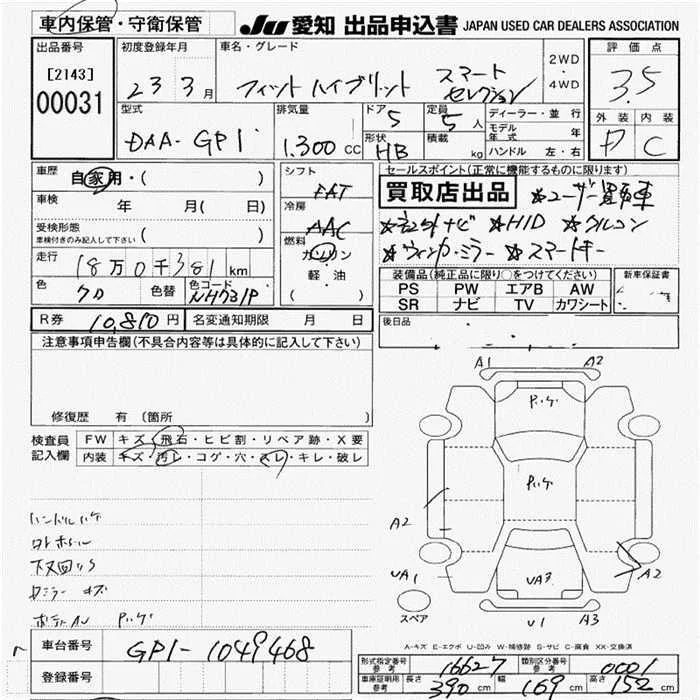 車内保管・守衛保管
JU 愛知 出品申込書 JAPAN USED CAR DEALERS ASSOCIATION
出品番号 初度登録年月 車名・グレード 評価点
[2143]
00031
23 3月
フィット ハイブリット スマート
セレクション
2WD
・
4WD
3.5
型式 排気量 ドア 定員 ディーラー・並行 外装 内装
DAA-GP1 1.300 CC 5 5人
モデル年式 年
形状 積載
HB kg ハンドル 左・右
D C
車歴 自家用・( )
シフト
FAT
セールスポイント(正常に機能するものに限ります)
買取店出品 ☆ユーザー買取車
車検 年 月( 日)
冷房
AAC
☆ナビ ☆HID ☆クルコン
受検形態
車検付きのみ記入して下さい ( )
☆ウィンカーミラー ☆スマートキー
走行 18万0千381km
燃料
ガソリン
軽・油
( )
装備品(純正品に限り○をつけてください) 新車保証書
色 クロ 色替 色コード NH731P
PS PW エアB AW
SR ナビ TV カワシート
R券 10,810円 名変通知期限 月 日
後日品
注意事項申告欄(不具合内容等は具体的に記入して下さい)
修復歴 有(箇所
検査員
記入欄
FW キズ・飛石・ヒビ割・リペア跡・X要
内装 キズ・汚レ・コゲ・穴・スレ・キレ・破レ
ハンドルハゲ
下廻サビ
A1 A2
P.ハゲ
P.ハゲ
A2
UA1
UA3
A2
スペア
U1 A3
A-キズ E-エクボ U-凹み W-補修跡 S-サビ C-腐食 XX-交換済
車台番号 GP1-1049468
登録番号
形式指定番号 参考 16627 類別区分番号 参考 0001
車庫証明用 参考 長さ 390cm 幅 169cm 高さ 152cm